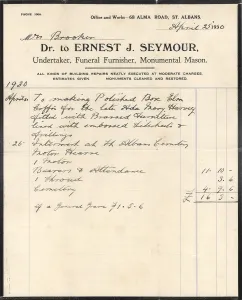 Office and Works - 68 ALMA ROAD, ST. ALBANS.
April 25 1930
Mrs Brooker
Dr. to ERNEST J. SEYMOUR,
Undertaker, Funeral Furnisher, Monumental Mason.
ALL KINDS OF BUILDING REPAIRS NEATLY EXECUTED AT MODERATE CHARGES.
ESTIMATES GIVEN MONUMENTS CLEANED AND RESTORED.
1930
To making Polished Box Elm
Coffin for the late Mary Harvey
fitted with Brassed Furniture
lined with embossed Sidesheets &
Frillings
26 Interment at St Albans Cemetery
Motor Hearse
1 Motor
Bearers & Attendance
1
Cemetery
of a Grave £1-5-6